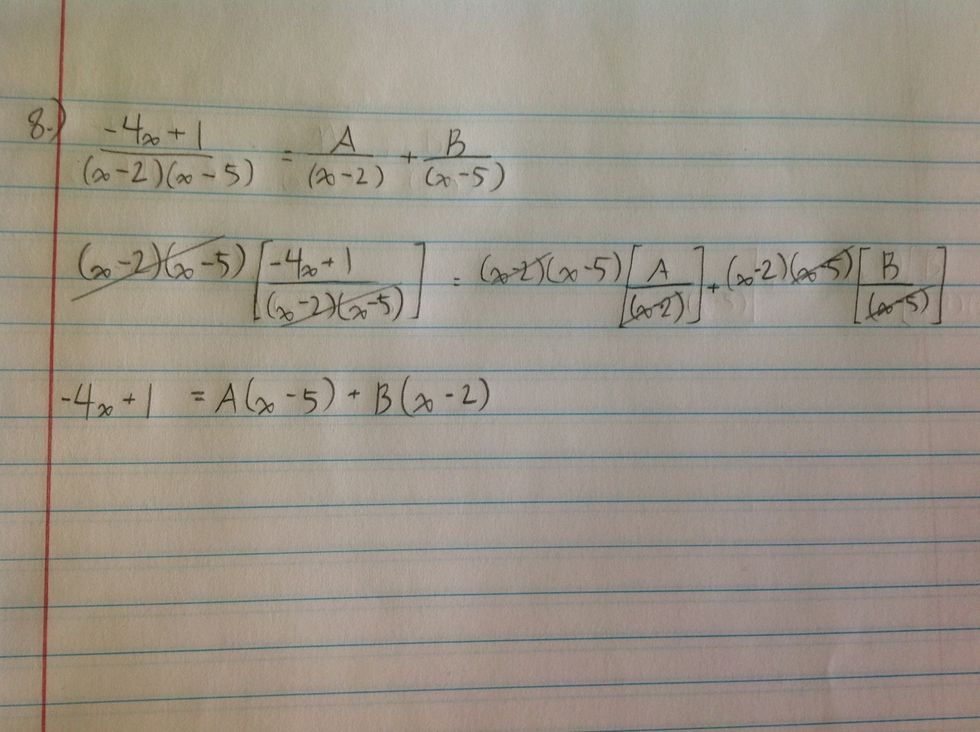 8.) -4x + 1 / (x - 2)(x - 5) = A / (x - 2) + B / (x - 5)
(x - 2)(x - 5) [-4x + 1 / (x - 2)(x - 5)] = (x - 2)(x - 5) [A / (x - 2)] + (x - 2)(x - 5) [B / (x - 5)]
-4x + 1 = A(x - 5) + B(x - 2)